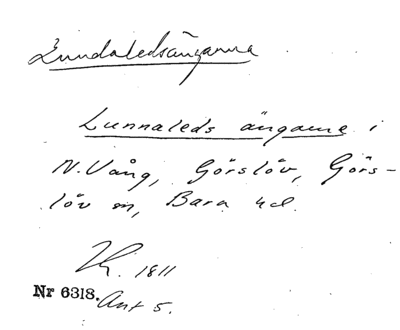 Lundaledsängarna
Lunnaleds ängarne i
N. Vång, Görslöv, Görs-
löv sn, Bara hd.
1811
Nr 6318. Akt 5.